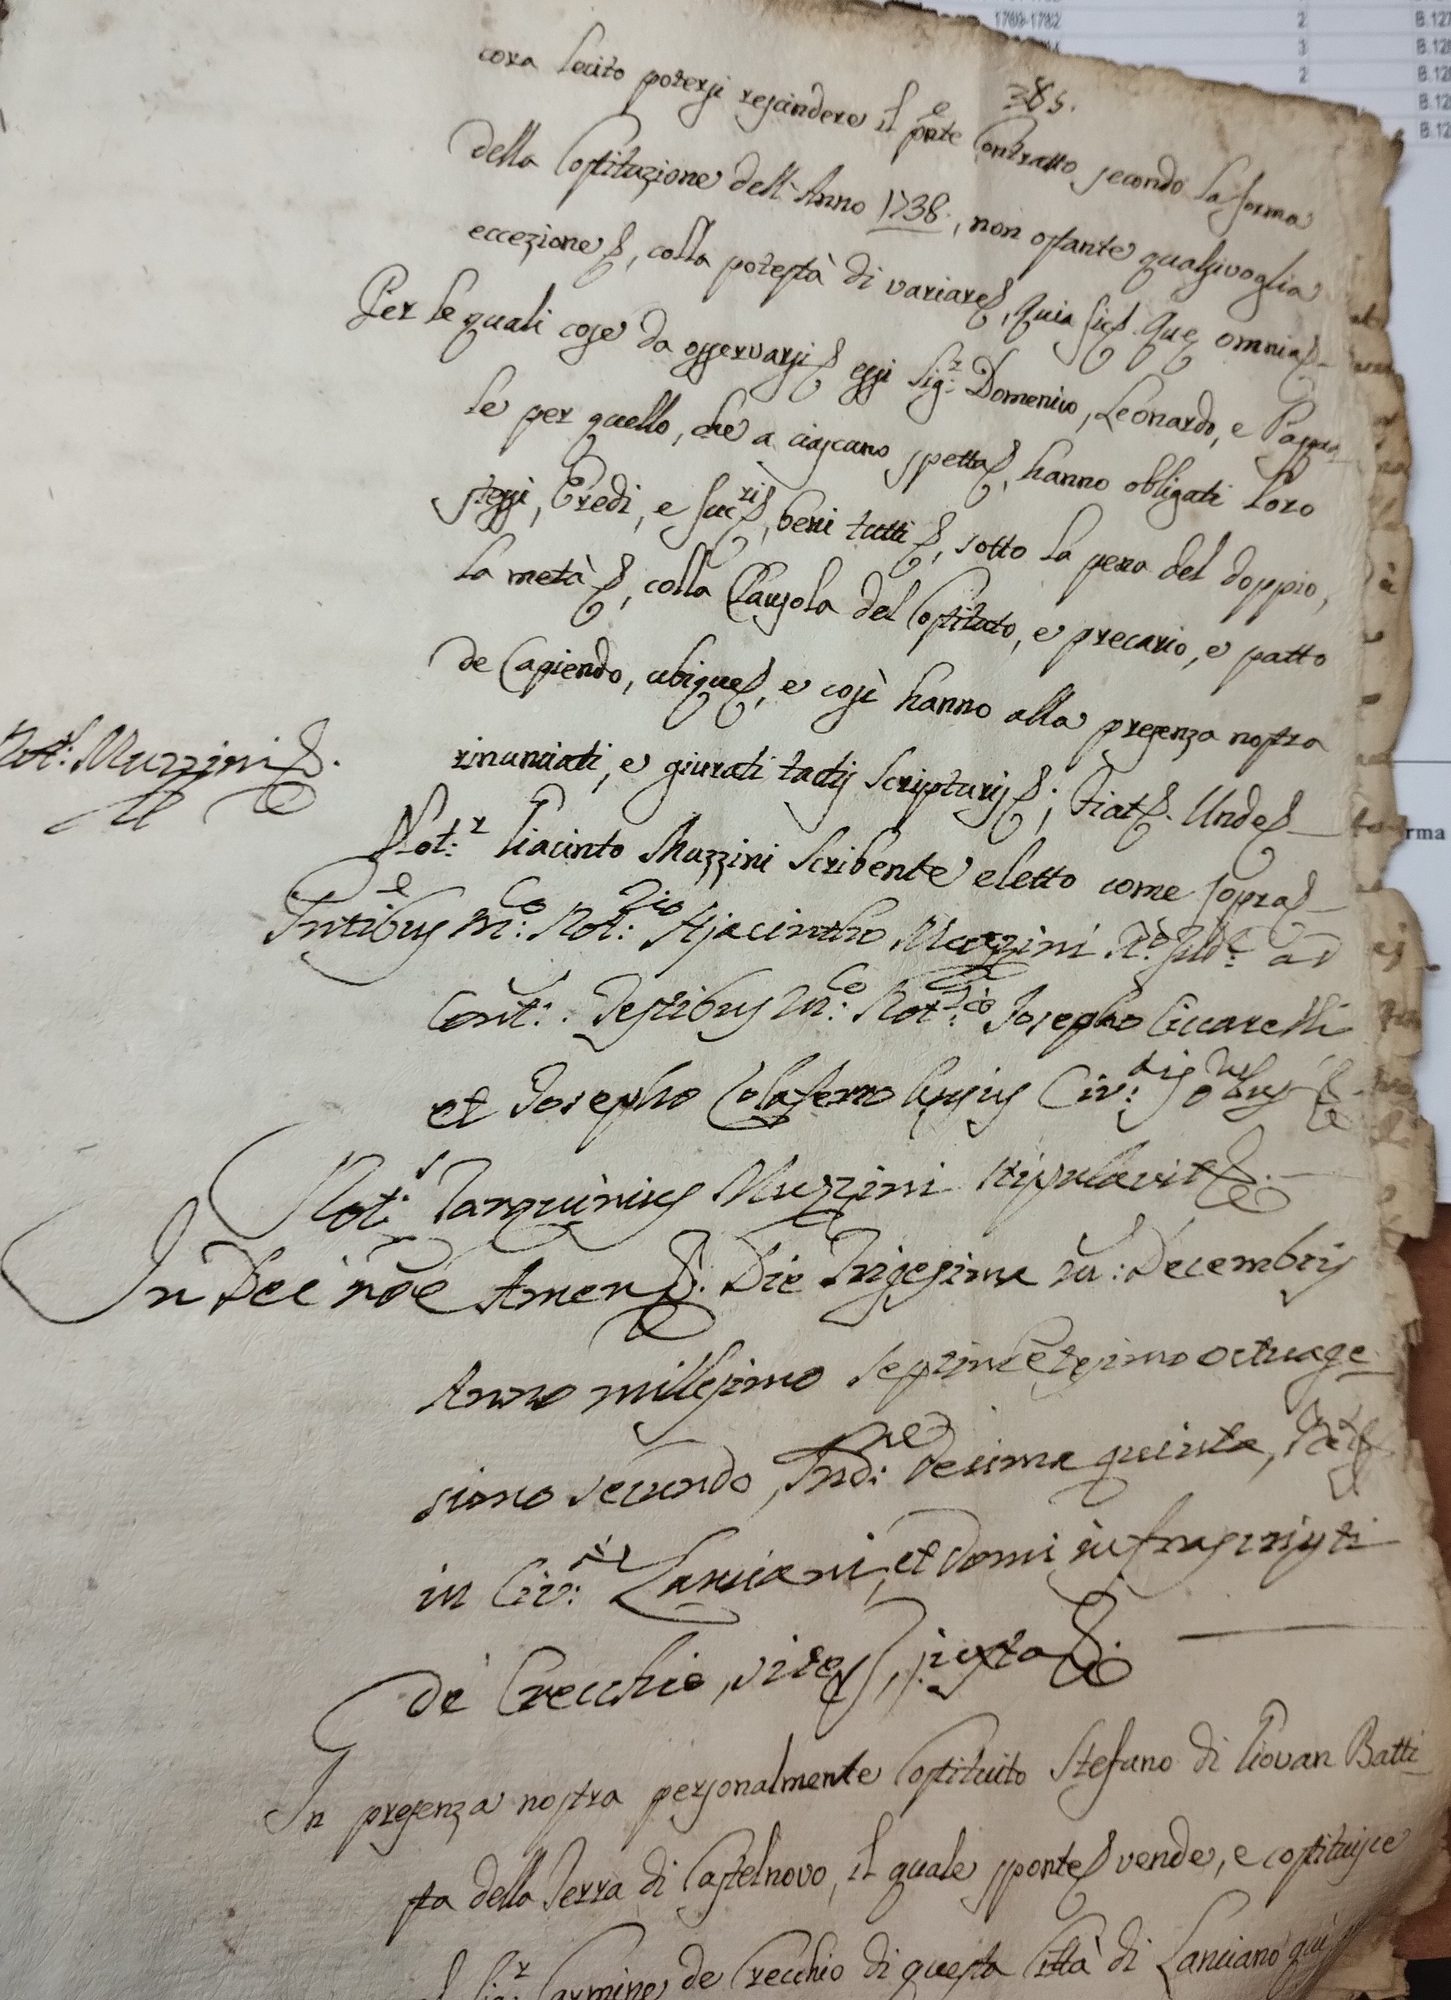 1769-1782 2 B.12
3 B.12
2 B.12
B.12
B.12
385.
cora lecito potersi rescindere il pnte Contratto secondo la forma
della Costituzione dell'Anno 1738., non ostante qualsivoglia
eccezione, colla potestà di variare, quia sic. Que omnia
Per le quali cose da osservarsi essi Sig.r Domenico, Leonardo, e
le per quello, che a ciascuno spetta, hanno obligati loro
stessi, Eredi, e Suc.ri, beni tutti, sotto la pena del doppio,
la metà, colla Clausola del Costituto, e precario, e patto
de Capiendo, ubique, e così hanno alla presenza nostra
rinunciati, e giurati tactis scripturis; Fiat. Unde
Not.r Muzzini.
Not.r Giacinto Muzzini Scribente eletto come sopra
Pntibus M.co Not.rio Hjacintho Muzzini R.o Jud.e ad
Cont.: Testibus M.co Not.rio Josepho Ciccarelli
et Josepho Colaserro hujus Civ.tis
Not.r Tarquinius Muzzini stipulavit.
In Dei nõe Amen. Die Trigesima m.: Decembris
Anno millesimo septincẽtesimo octuage
simo secundo, Ind.ne Decima quinta,
in Civ.te Lanciani, et Domi infrascripti
de Crecchio, site, juxta.
In presenza nostra personalmente Costituito Stefano di Giovan Batti
sta della Terra di Castelnovo, il quale sponte vende, e costituisce
Sig.r Carmine de Crecchio di questa Città di Lanciano quì
rma